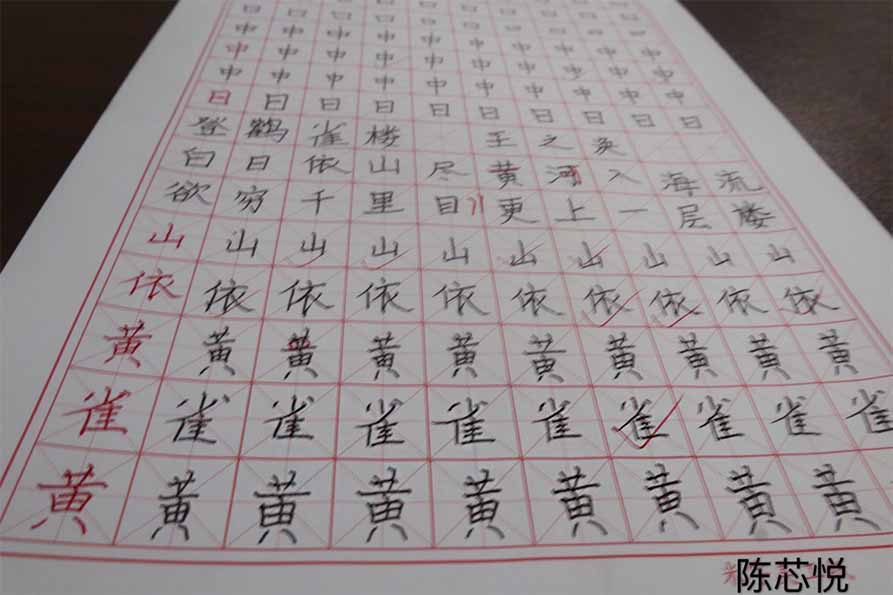 日 日 日 日 日 日 日 日 日 日
中 中 中 中 中 中 中 中 中 中
中 中 中 中 中 中 中 中 中 中
中 中 中 中 中 中 中 中 中 中
日 日 日 日 日 日 日 日 日 日
登 鹳 雀 楼 王 之 奂
白 日 依 山 尽 黄 河 入 海 流
欲 穷 千 里 目 更 上 一 层 楼
山 山 山 山 山 山 山 山 山 山
依 依 依 依 依 依 依 依 依 依
黄 黄 黄 黄 黄 黄 黄 黄 黄 黄
雀 雀 雀 雀 雀 雀 雀 雀 雀 雀
黄 黄 黄 黄 黄 黄 黄 黄 黄
陈芯悦